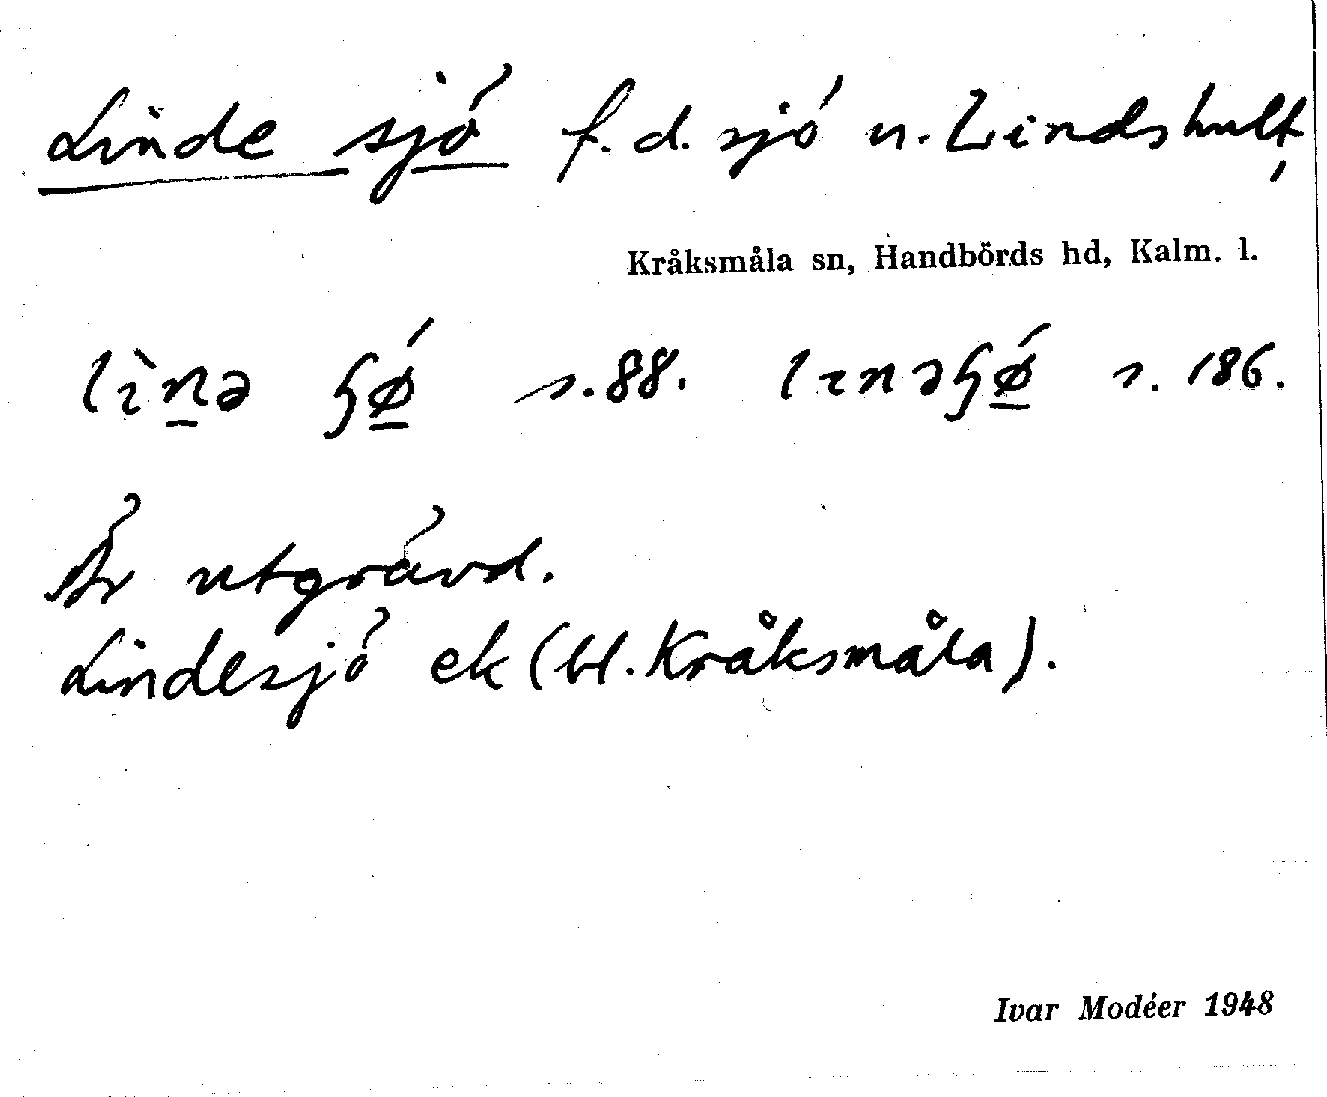 Linde sjö f.d. sjö u. Lindshult,
Kråksmåla sn, Handbörds hd, Kalm. l.
lìn̲ə ɧǿ̲ s.88. lɪnəɧǿ̲ s. 186.
Är utgrävd.
Lindesjö ek (bl. Kråksmåla).
Ivar Modéer 1948